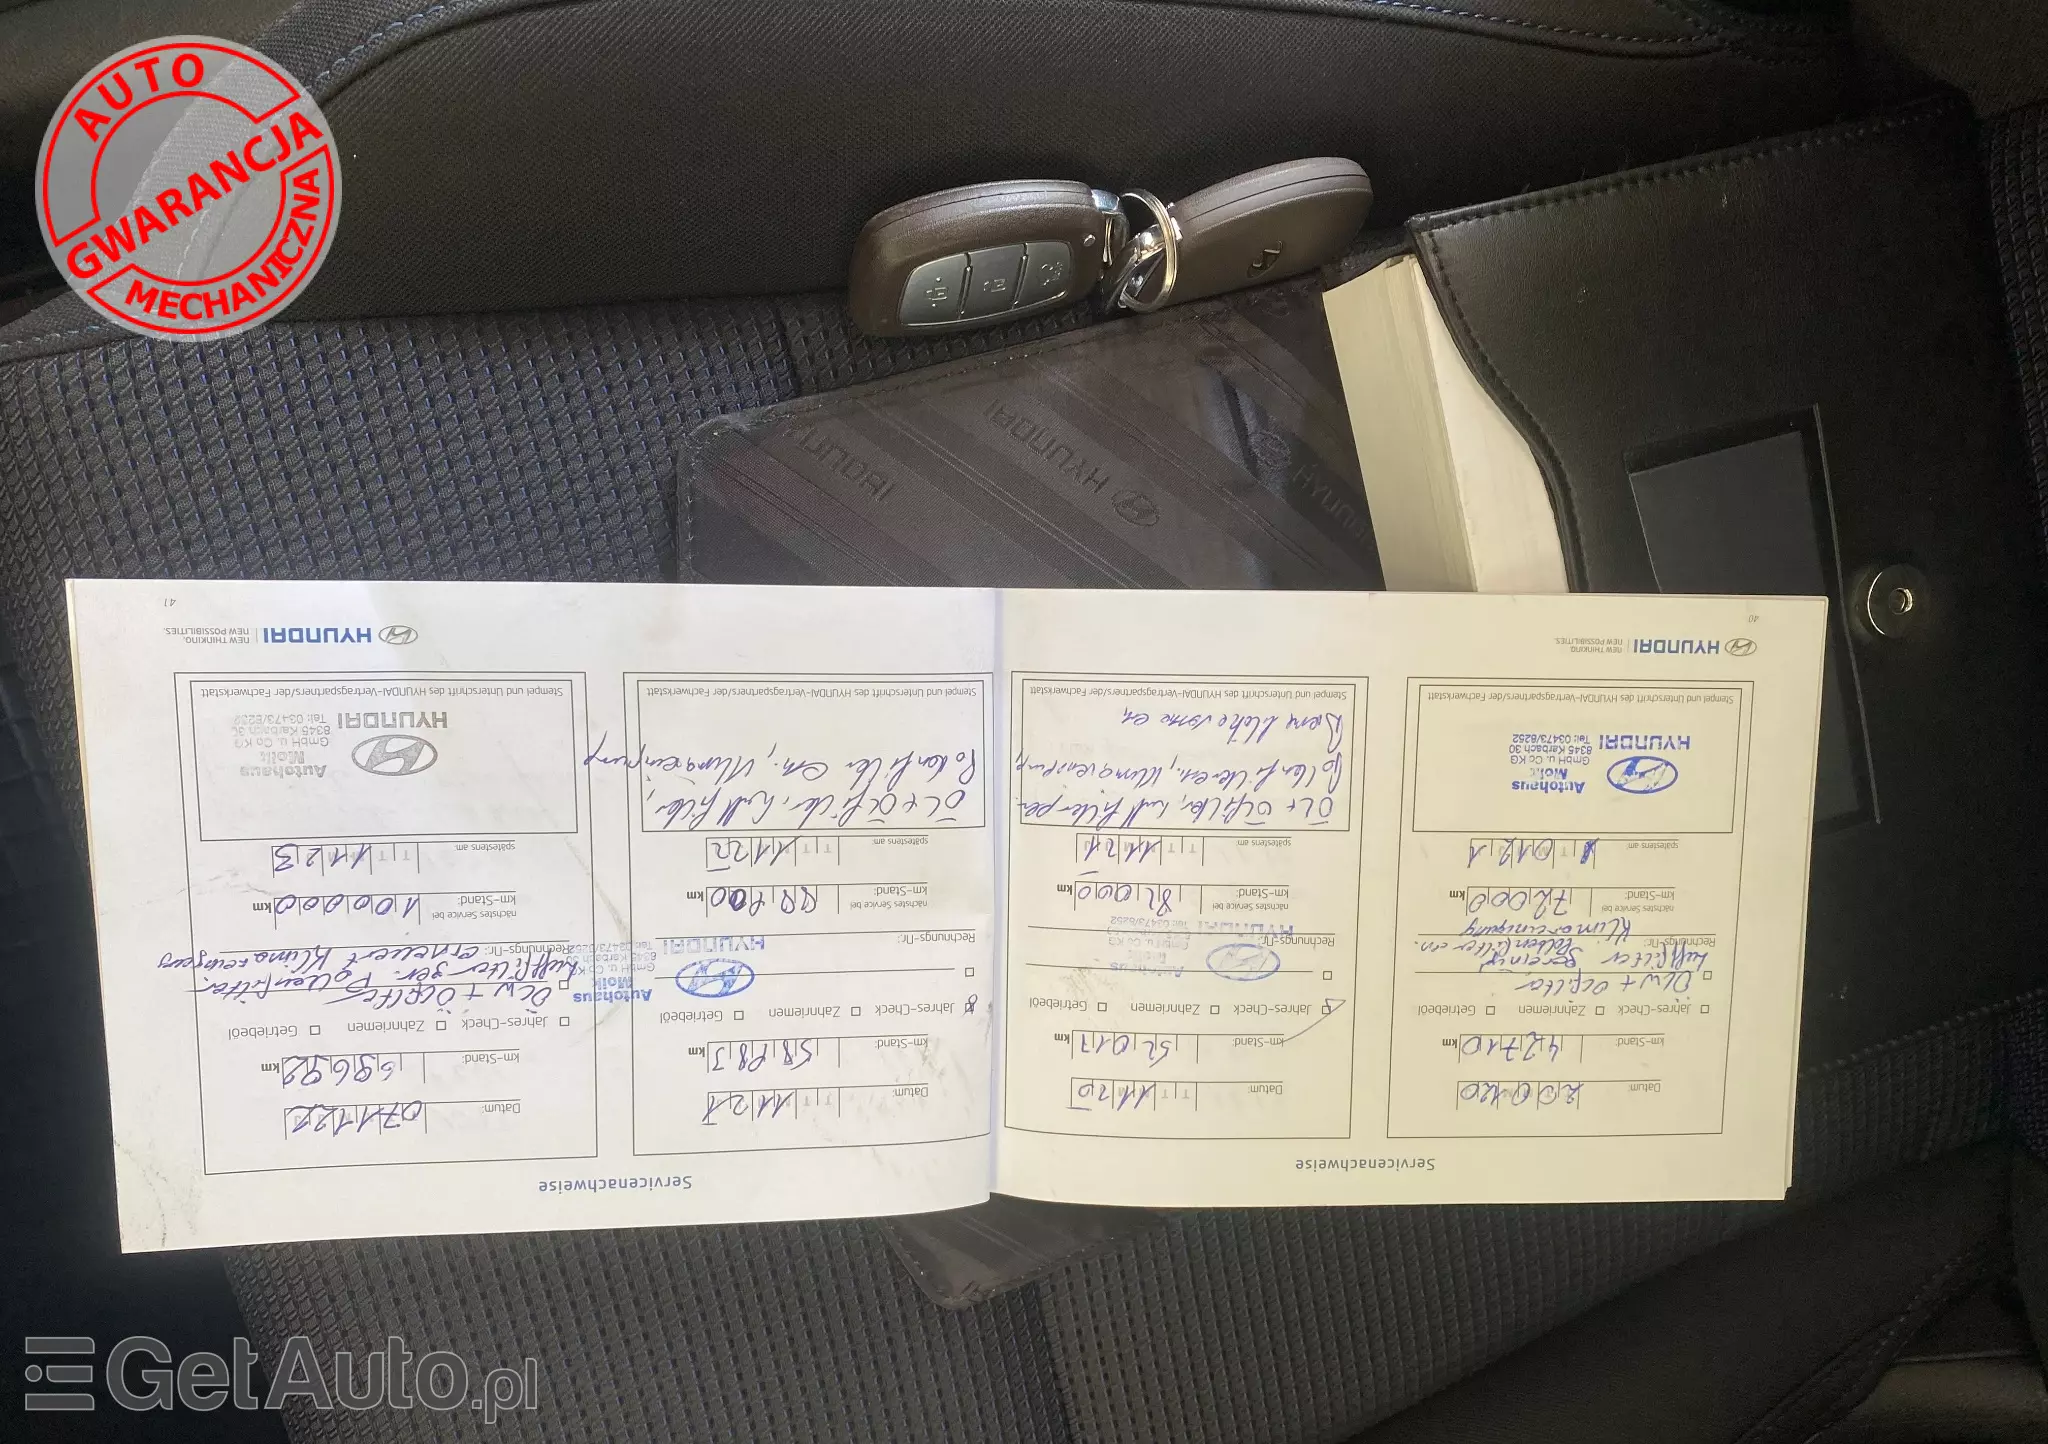 AUTO
GWARANCJA
MECHANICZNA
HYUNDAI
HYUNDAI
Servicenachweise
Datum:
200120
km-Stand:
42710 km
Jahres-Check
Zahnriemen
Getriebeöl
ÖLW + Ölfilter
Luftfilter gereinigt
Rechnungs-Nr.:
Pollenfilter ern.
Klimareinigung
nächstes Service bei
km-Stand:
72000 km
spätestens am:
0121
Autohaus
Molk
GmbH u. Co KG
8345 Karbach 30
HYUNDAI
Tel: 03473/8252
Stempel und Unterschrift des HYUNDAI-Vertragspartners/der Fachwerkstatt
Datum:
1120
km-Stand:
52017 km
Jahres-Check
Zahnriemen
Getriebeöl
Autohaus
HYUNDAI
Tel: 03473/8252
Rechnungs-Nr.:
nächstes Service bei
km-Stand:
82000 km
spätestens am:
1121
ÖL+ Ölfilter, Luftfilter
Pollenfilter ern., Klimareinigung
Stempel und Unterschrift des HYUNDAI-Vertragspartners/der Fachwerkstatt
HYUNDAI
NEW THINKING.
NEW POSSIBILITIES.
40
Servicenachweise
Datum:
1121
km-Stand:
km
Jahres-Check
Zahnriemen
Getriebeöl
Autohaus
Molk
GmbH u. Co KG
8345 Karbach 30
HYUNDAI
Tel: 03473/8252
Rechnungs-Nr.:
nächstes Service bei
km-Stand:
km
spätestens am:
1122
ÖL+ Ölfilter, Luftfilter,
Pollenfilter ern., Klimareinigung
Stempel und Unterschrift des HYUNDAI-Vertragspartners/der Fachwerkstatt
Datum:
071122
km-Stand:
69692 km
Jahres-Check
Zahnriemen
Getriebeöl
ÖLW + Ölfilter
Luftfilter ger. Pollenfilter
Rechnungs-Nr.:
erneuert Klimareinigung
nächstes Service bei
km-Stand:
100000 km
spätestens am:
1123
Autohaus
Molk
GmbH u. Co KG
8345 Karbach 30
HYUNDAI
Tel: 03473/8252
Stempel und Unterschrift des HYUNDAI-Vertragspartners/der Fachwerkstatt
HYUNDAI
NEW THINKING.
NEW POSSIBILITIES.
41
GetAuto.pl